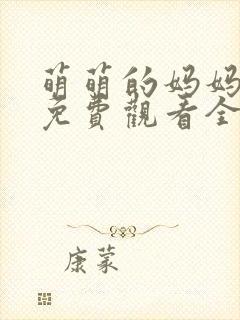 萌萌的妈妈
免費觀看全
康蒙